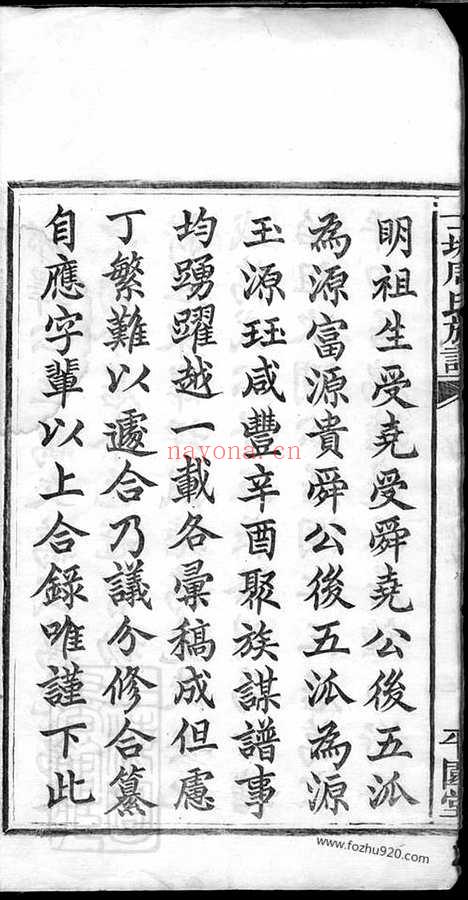 明祖生受堯受舜堯公後五派
為源富源貴舜公後五派為源
玉源珏咸豐辛酉聚族謀譜事
均踴躍越一載各彙稿成但慮
丁繁難以遽合乃議分修合纂
自應字輩以上合錄唯謹下此
周氏族譜
nayona.cn
www.fozhu920.com